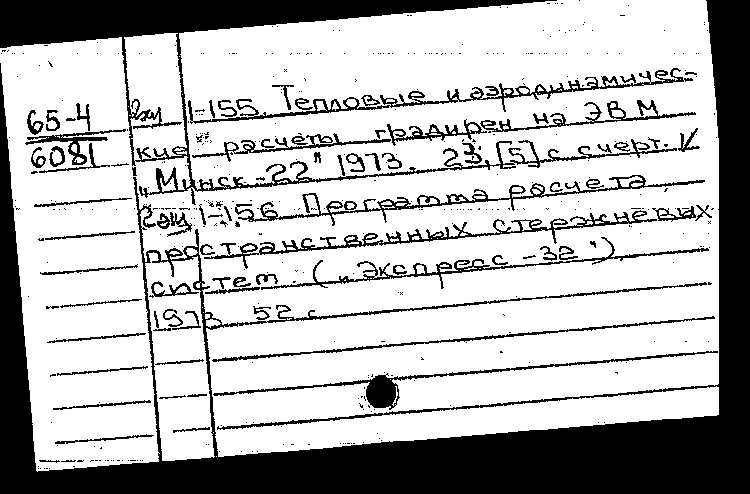 65-4
6081
2экз I-155. Тепловые и аэродинамичес-
кие расчеты градирен на ЭВМ
„Минск-22" 1973. 23, [5] с с черт. V
2экз I-156 Программа расчета
пространственных стержневых
систем. („Экспресс-32")
1973 52 с